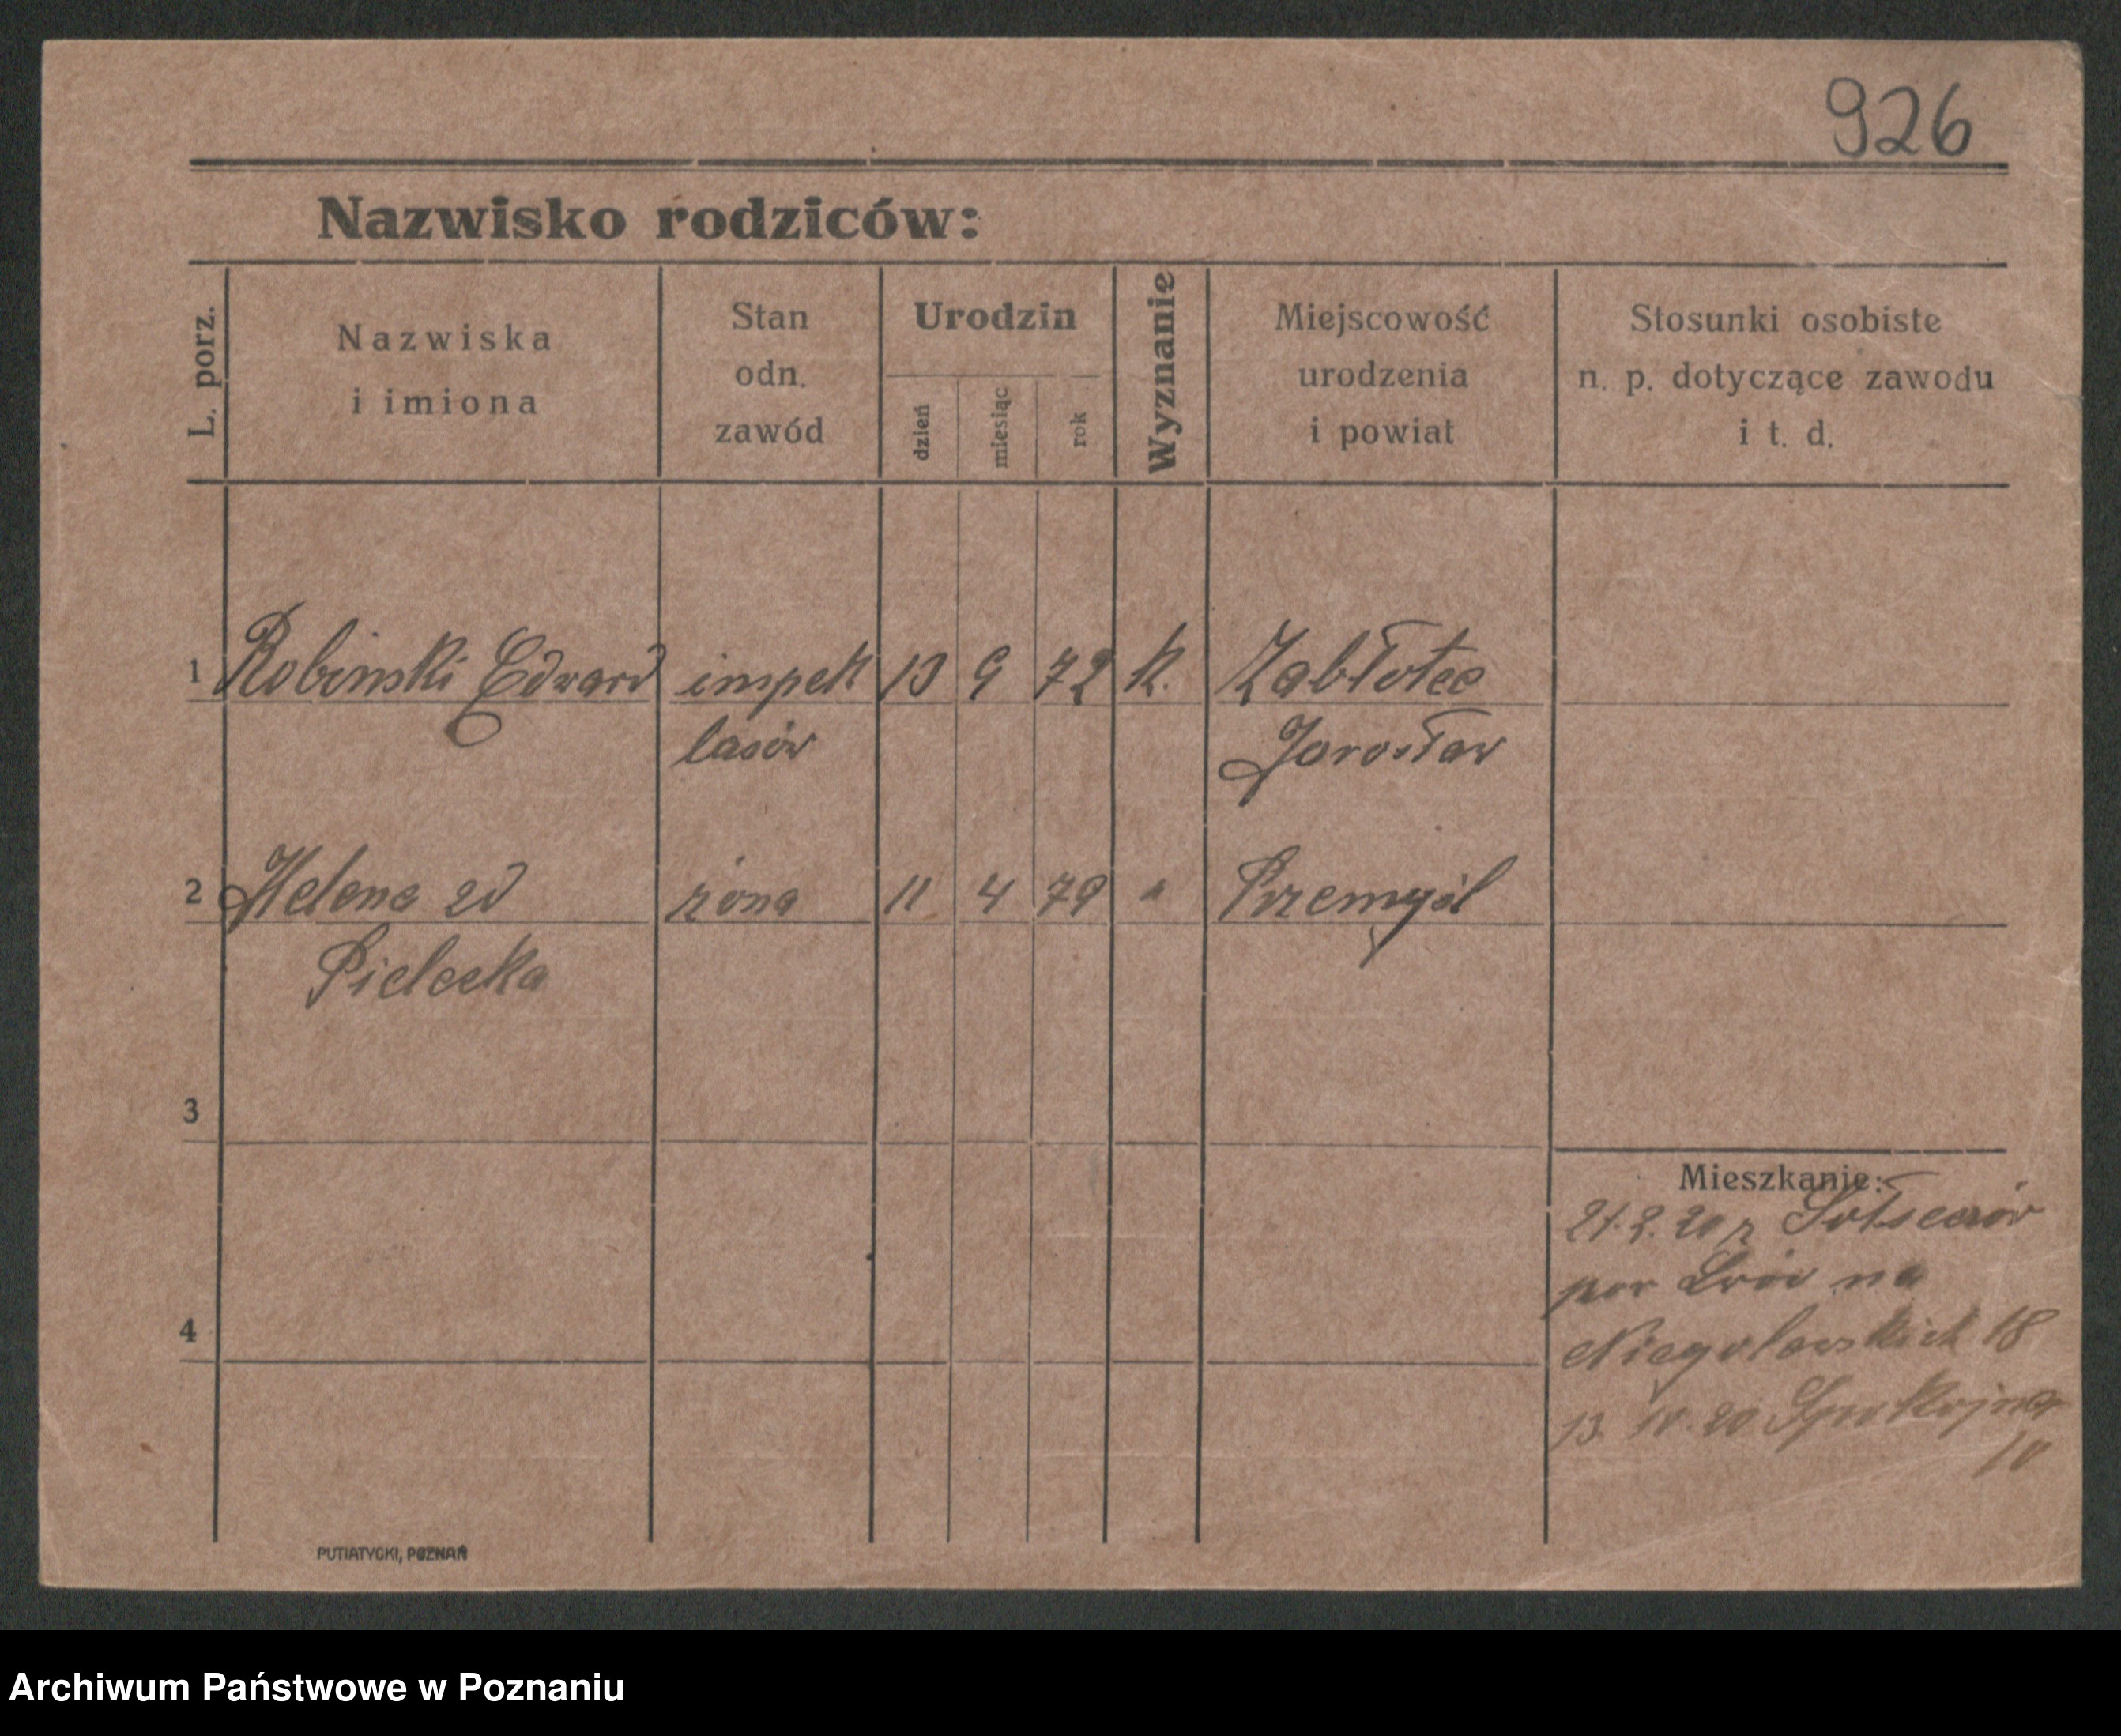 926
Nazwisko rodziców:
L. porz.
Nazwiska
i imiona
Stan
odn.
zawód
Urodzin
dzień
miesiąc
rok
Wyznanie
Miejscowość
urodzenia
i powiat
Stosunki osobiste
n. p. dotyczące zawodu
i t. d.
1 Robinski Edward inspek 13 9 72 k. Zabłotce
lasów Jarosław
2 Helena zd żona 11 4 79 " Przemyśl
Pielecka
3
4
Mieszkanie:
21.2.20 z
por na
Niegolewskich 18
13. 10. 20 Spokojna
10
PUTIATYCKI, POZNAŃ
Archiwum Państwowe w Poznaniu